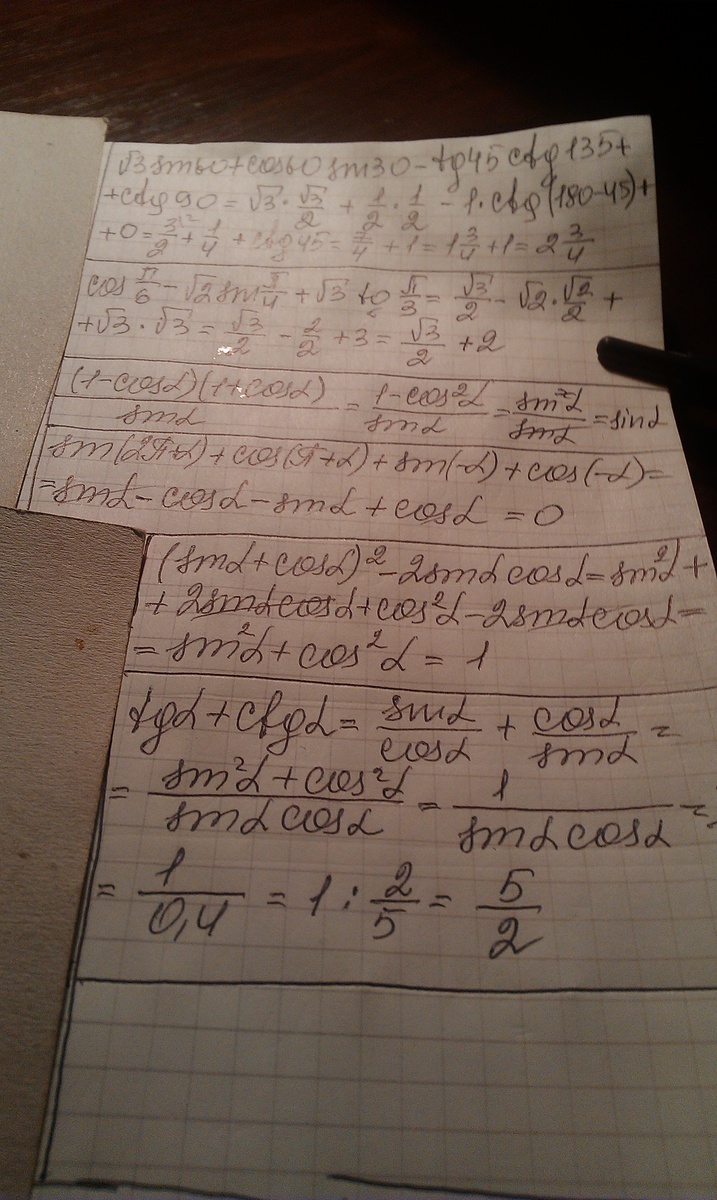 √3 sin60+cos60 sin30-tg45 ctg135+
+ctg90 = √3·√3/2 + 1/2·1/2 - 1·ctg(180-45)+
+0 = 3/2+1/4 + ctg45 = 7/4 +1 = 1 3/4 +1 = 2 3/4
cos π/6 - √2 sin π/4 + √3 tg π/3 = √3/2 - √2·√2/2 +
+√3·√3 = √3/2 - 2/2 +3 = √3/2 +2
(1-cosα)(1+cosα)/sinα = 1-cos²α/sinα = sin²α/sinα = sinα
sin(2π+α)+cos(π+α)+sin(-α)+cos(-α)=
=sinα-cosα-sinα+cosα=0
(sinα+cosα)²-2sinαcosα=sin²α+
+2sinαcosα+cos²α-2sinαcosα=
=sin²α+cos²α=1
tgα+ctgα= sinα/cosα + cosα/sinα =
= sin²α+cos²α/sinαcosα = 1/sinαcosα =
= 1/0,4 = 1 : 2/5 = 5/2